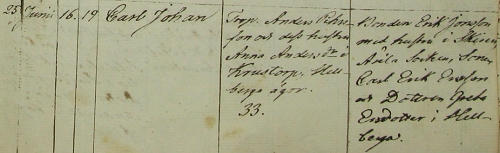 25 Junii 16. 19 Carl Johan
Torp. Anders Pehrs-
son och dess hustru
Anna Anders Dr i
Krustorp, Hell-
berga ägor.
33.
Bonden Erik Jonsson
med hustru i
Socken, Sonen
Carl Erik Ersson
och Dottren Greta
Ersdotter i Hell-
berga.